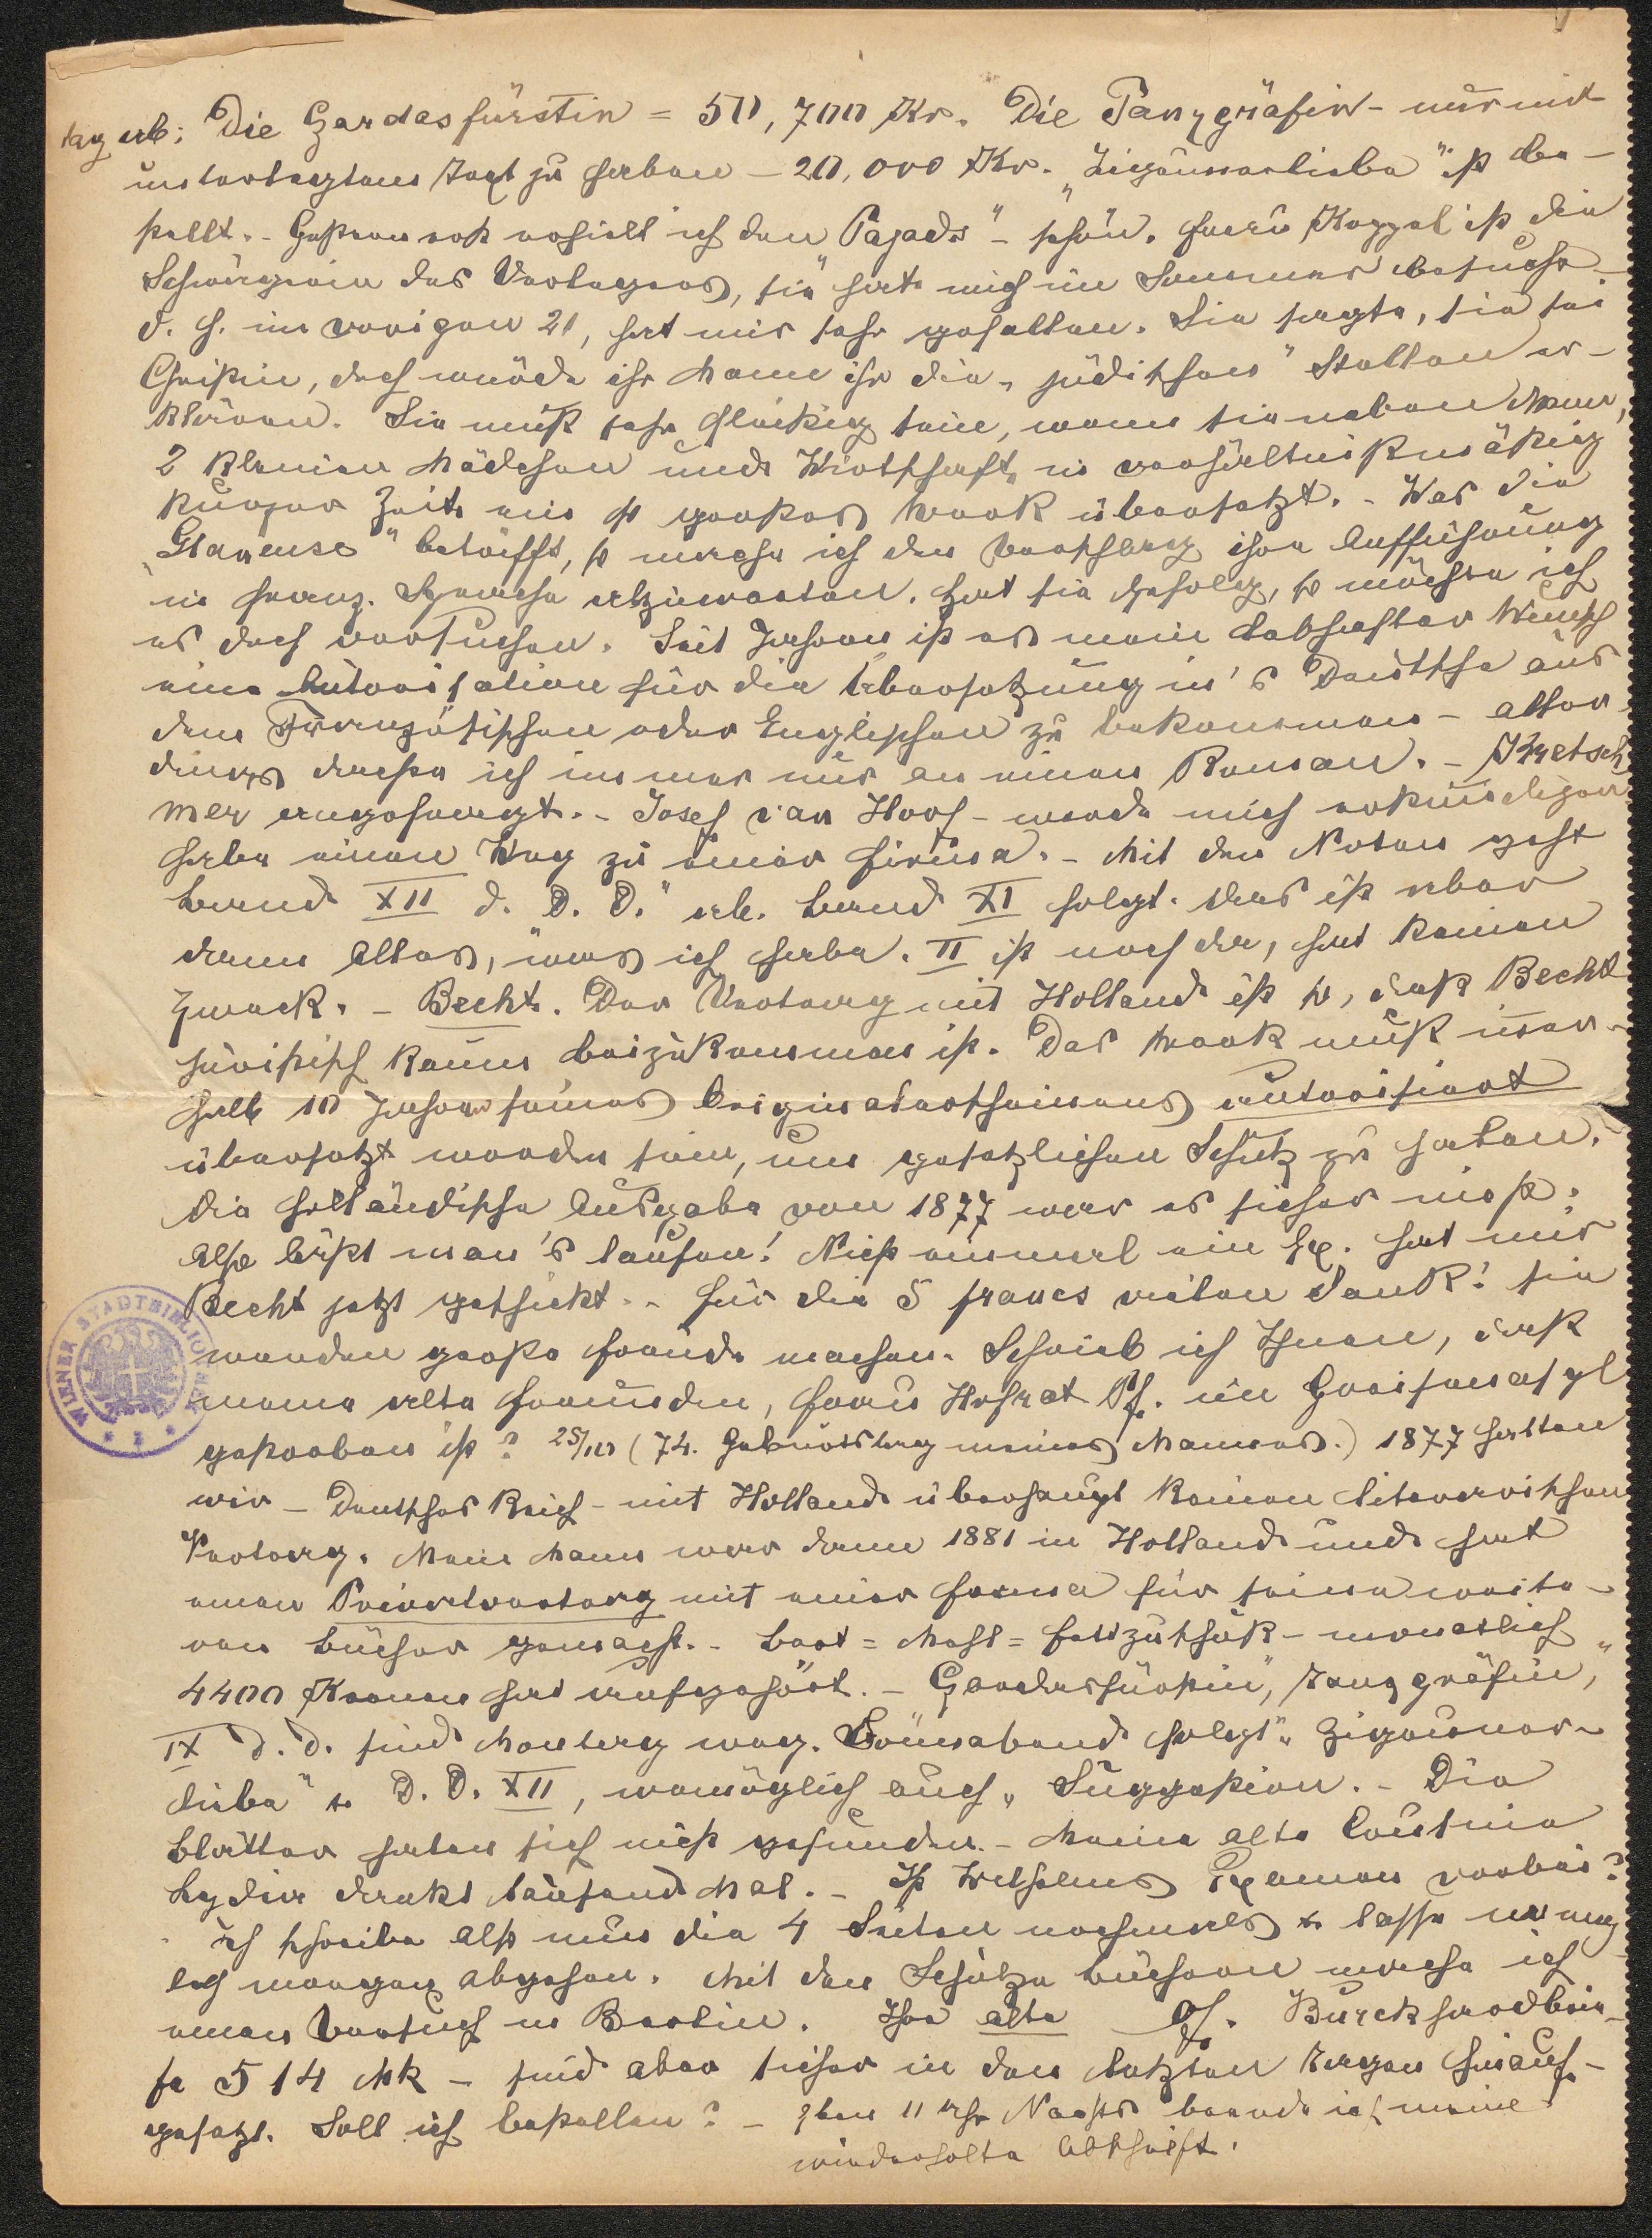 tag ab: Die Czardasfürstin = 50,700 Kr. Die Tanzgräfin - nur mit
unterlegtem Text zu haben - 20,000 Kr. „Zigeunerliebe" ist be-
stellt. - Gestern erst erhielt ich den „Pajads" - schön. Frau Kappel ist die
Schwägerin des Verlegers, sie hat mich im Sommer besucht -
d. h. im vorigen 21, hat mir sehr gefallen. Sie sagte, sie sei
Christin, doch würde ihr Mann ihr die „jüdischen" Stellen er-
klären. Sie muß sehr fleißig sein, wenn sie neben Mann,
2 kleinen Mädchen und Wirthschaft, in verhältnißmäßig
kurzer Zeit ein so großes Werk übersetzt. - Was die
„Glaneuse" betrifft, so mache ich den Vorschlag ihre Aufführung
in franz. Sprache abzuwarten. Hat sie Erfolg, so möchte ich
es doch versuchen. Seit Jahren ist es mein lebhafter Wunsch
eine Autorisation für die Übersetzung in's Deutsche aus
dem Französischen oder Englischen zu bekommen - aller-
dings dachte ich immer nur an einen Roman. - Kretsch
mer angefragt. - Josef van Hoof - werde mich erkundigen
habe einen Weg zu einer Firma. - Mit den Noten geht
Band XII d. D. D." ab. Band XI folgt. Das ist aber
dann Alles, was ich habe. II ist noch da, hat keinen
Zweck. - Becht. Der Vertrag mit Holland ist so, daß Becht
juristisch kaum beizukommen ist. Das Werk muß inner-
halb 10 Jahren seines Originalerscheinens autorisiert
übersetzt worden sein, um gesetzlichen Schutz zu haben.
Die holländische Ausgabe von 1877 war es sicher nicht.
Also läßt man's laufen! Nicht einmal ein Ex. hat mir
Becht jetzt geschickt. - Für die 5 francs vielen Dank! sie
werden große Freude machen. Schrieb ich Ihnen, daß
meine alte Freundin, Frau Hofrat Pf. in Greifswald
gestorben ist? 25/10 (74. Geburtstag meines Mannes.) 1877 hatten
wir - Deutsches Reich - mit Holland überhaupt keinen literarischen
Vertrag. Mein Mann war dann 1881 in Holland und hat
einen Privatvertrag mit einer Firma für seine weite-
ren Bücher gemacht. - Brot = Mehl = Fettzuschuß - monatlich
4400 Kronen hat aufgehört. - „Czardasfürstin", „Tanzgräfin",
IX D. D. sind Montag weg. Sonnabend folgt „Zigeuner-
liebe" u. D. D. XII, womöglich auch „Suggestion. - Die
Blätter haben sich nicht gefunden. - Meine alte Cousine
Lydia dankt tausend Mal. - Ist Wilhelms Examen vorbei?
Ich schreibe also nun die 4 Seiten nochmals u. lasse
morgen abgehen. Mit den Schulze Büchern mache ich
einen Versuch in Berlin. Ihre alte Burckhardtbrie-
fe 5 14 Mk - sind aber sicher in den letzten Tagen hinauf-
gesetzt. Soll ich bestellen? - Eben 11 Uhr Nachts beende ich meine
wiederholte Abschrift.
WIENER STADTBIBLIOTHEK